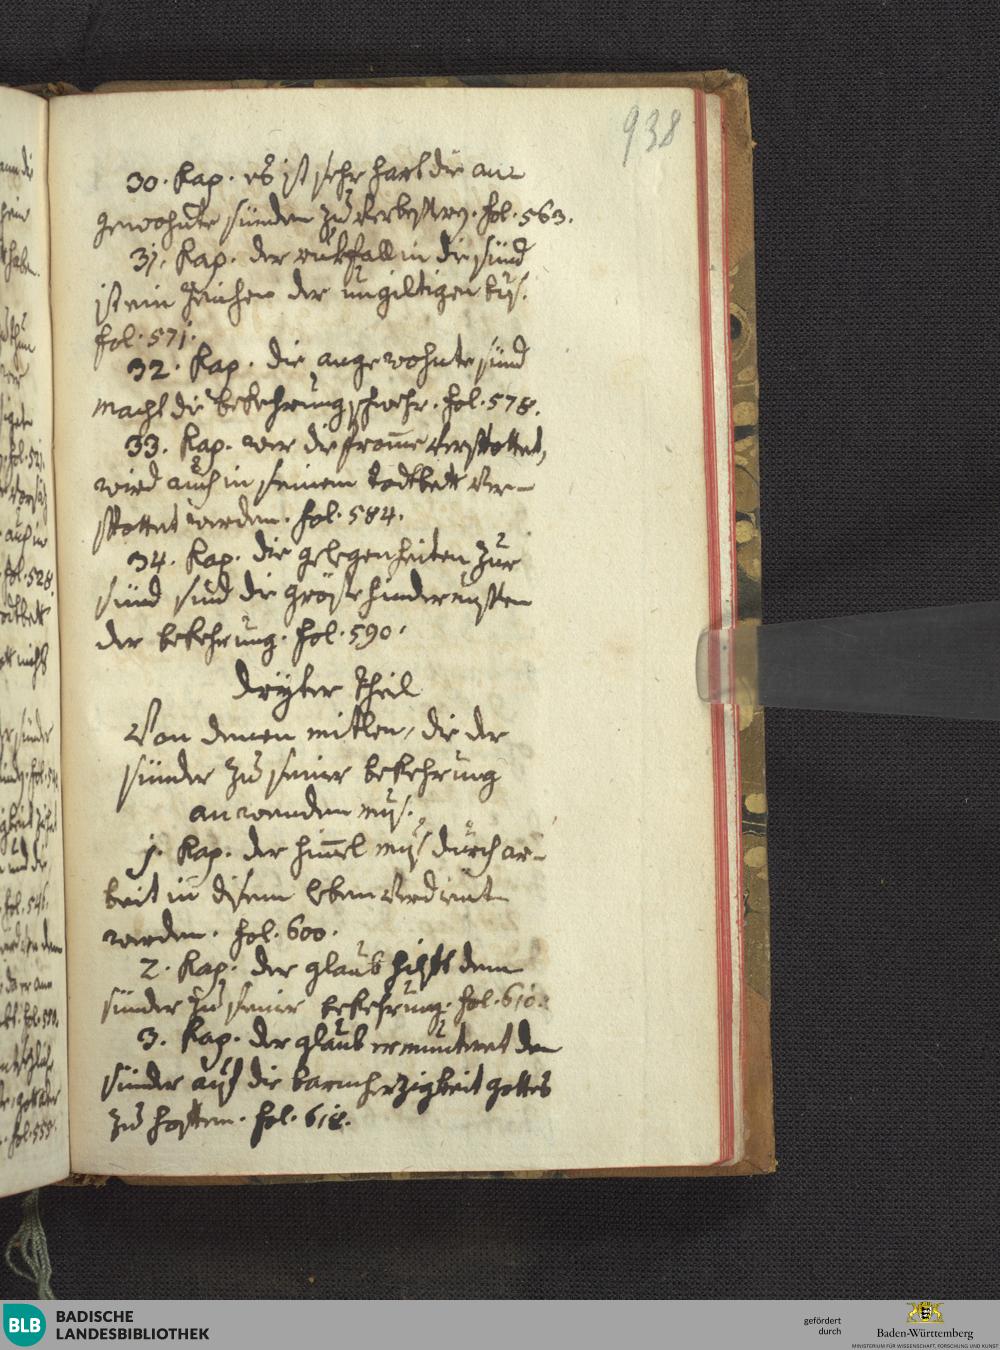 938
30. Kap. es ist sehr hart die an-
gewohnte sünden zu verbessern. fol. 563.
31. Kap. der rükfall in die sünd
ist ein zeichen der ungiltigen bus.
fol. 571.
32. Kap. die angewohnte sünd
macht die bekehrung schwehr. fol. 578.
33. Kap. wer die from̄e verspottet,
wird auch in seinem todtbett ver-
spottet werden. fol. 584.
34. Kap. die gelegenheiten zur
sünd sind die gröste hindernussen
der bekehrung. fol. 590.
dryter theil
Von denen mitlen, die der
sünder zu seiner bekehrung
anwenden mus.
1. Kap. der him̄el mus durch ar-
beit in disem leben verdient
werden. fol. 600.
2. Kap. der glaub hilft dem
sünder zu seiner bekehrung. fol. 610.
3. Kap. der glaub ermunteret den
sünder auf die barmherzigkeit gottes
zu hoffen. fol. 618.
BLB BADISCHE
LANDESBIBLIOTHEK
gefördert
durch
Baden-Württemberg
MINISTERIUM FÜR WISSENSCHAFT, FORSCHUNG UND KUNST